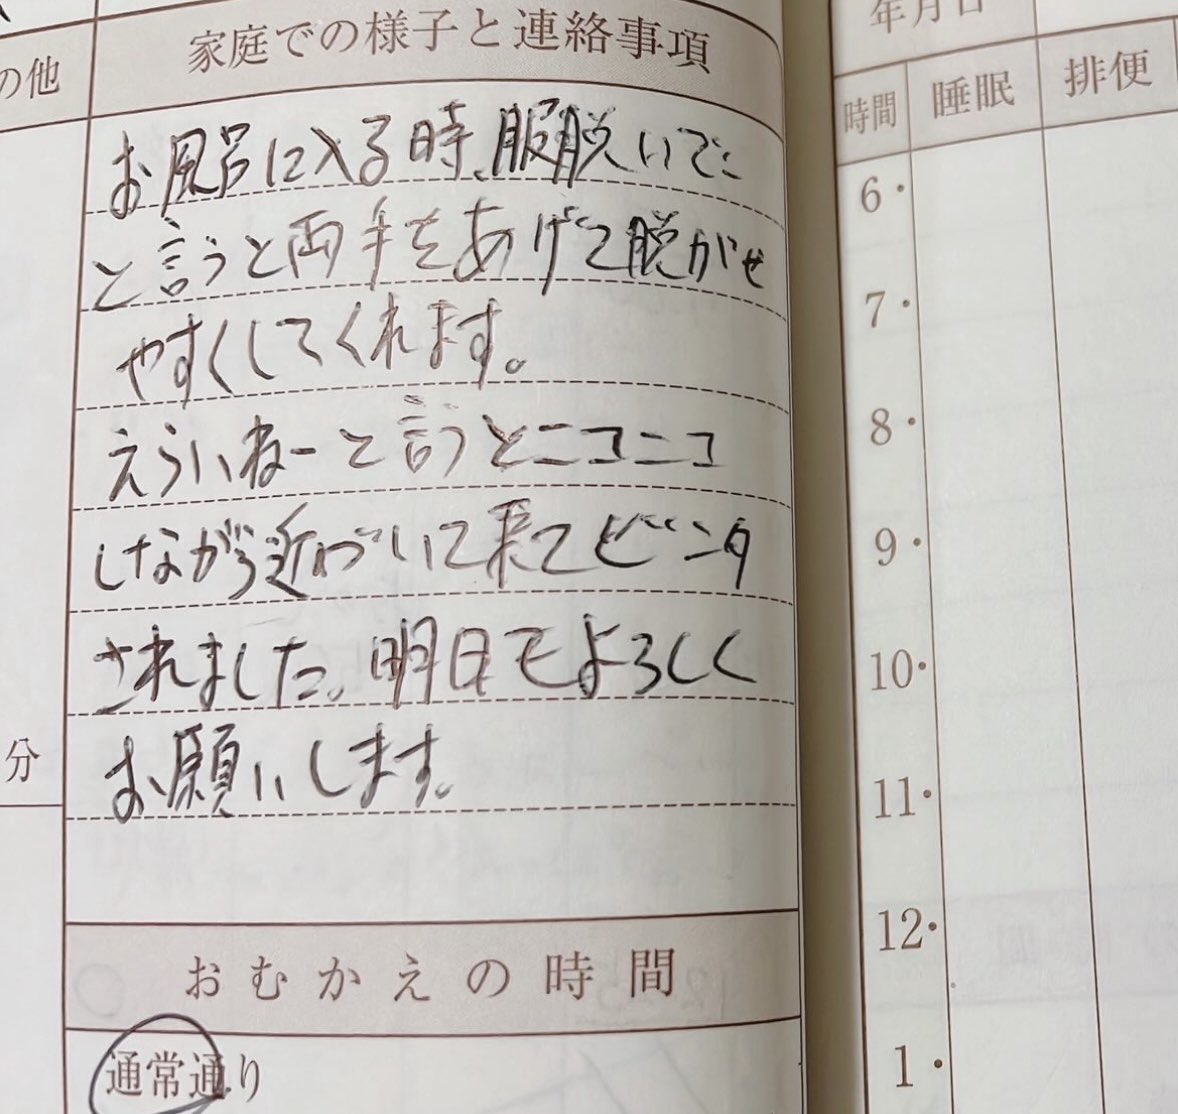 の他
家庭での様子と連絡事項
お風呂に入る時、服脱いで〜
と言うと両手をあげて脱がせ
やすくしてくれます。
えらいねーと言うとニコニコ
しながら近づいて来てビンタ
されました。明日もよろしく
お願いします。
分
おむかえの時間
通常通り
年月日
時間 睡眠 排便
6・
7・
8・
9・
10・
11・
12・
1・